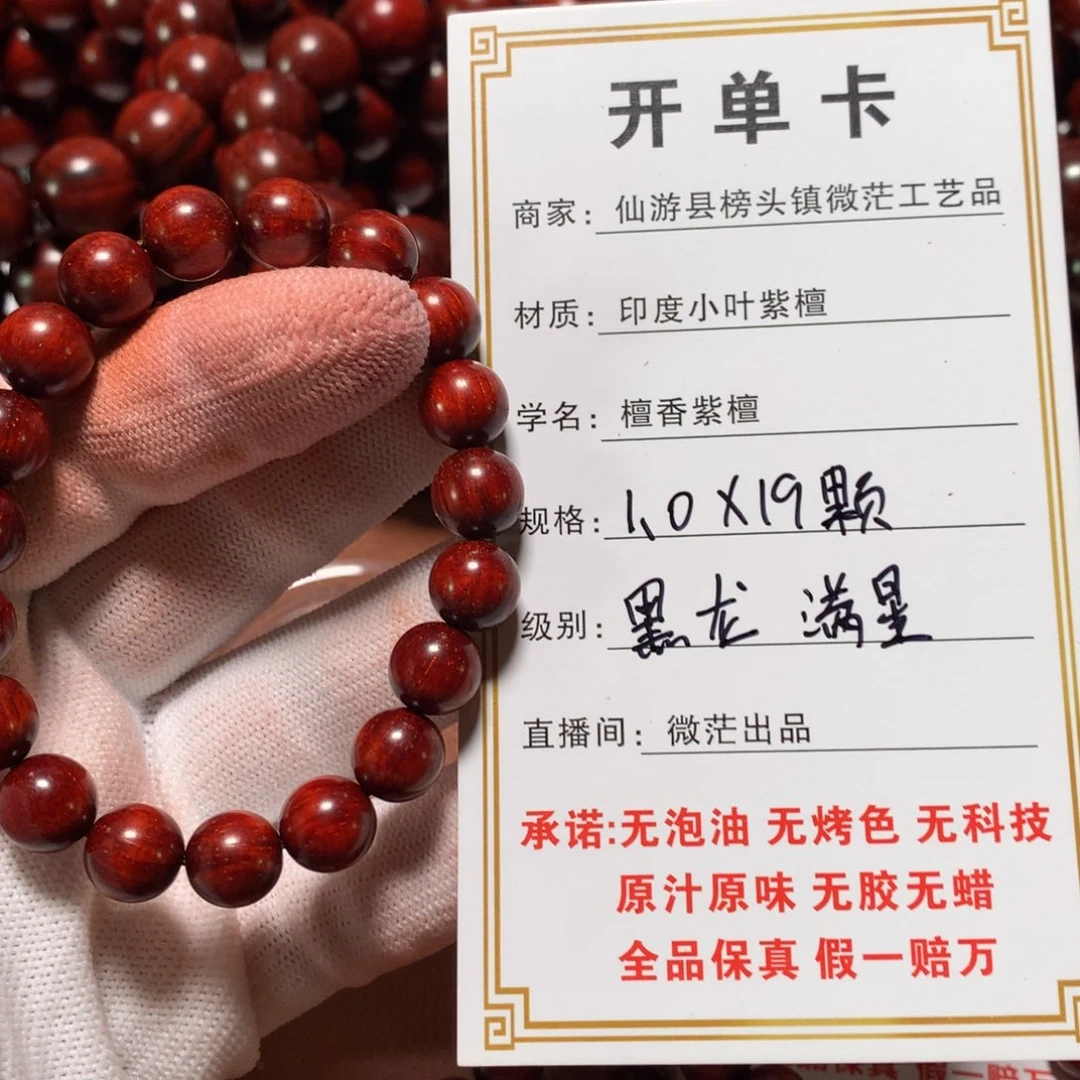 开单卡
商家：仙游县榜头镇微茫工艺品
材质：印度小叶紫檀
学名：檀香紫檀
规格：1.0X19颗
级别：黑龙 满星
直播间：微茫出品
承诺:无泡油 无烤色 无科技
原汁原味 无胶无蜡
全品保真 假一赔万
假一赔万